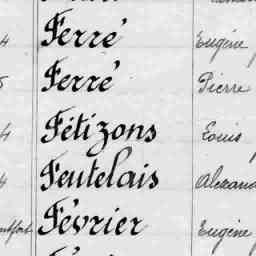 Ferré Eugène
Ferré Pierre
Fétizons Louis
Feutelais
Février Eugène